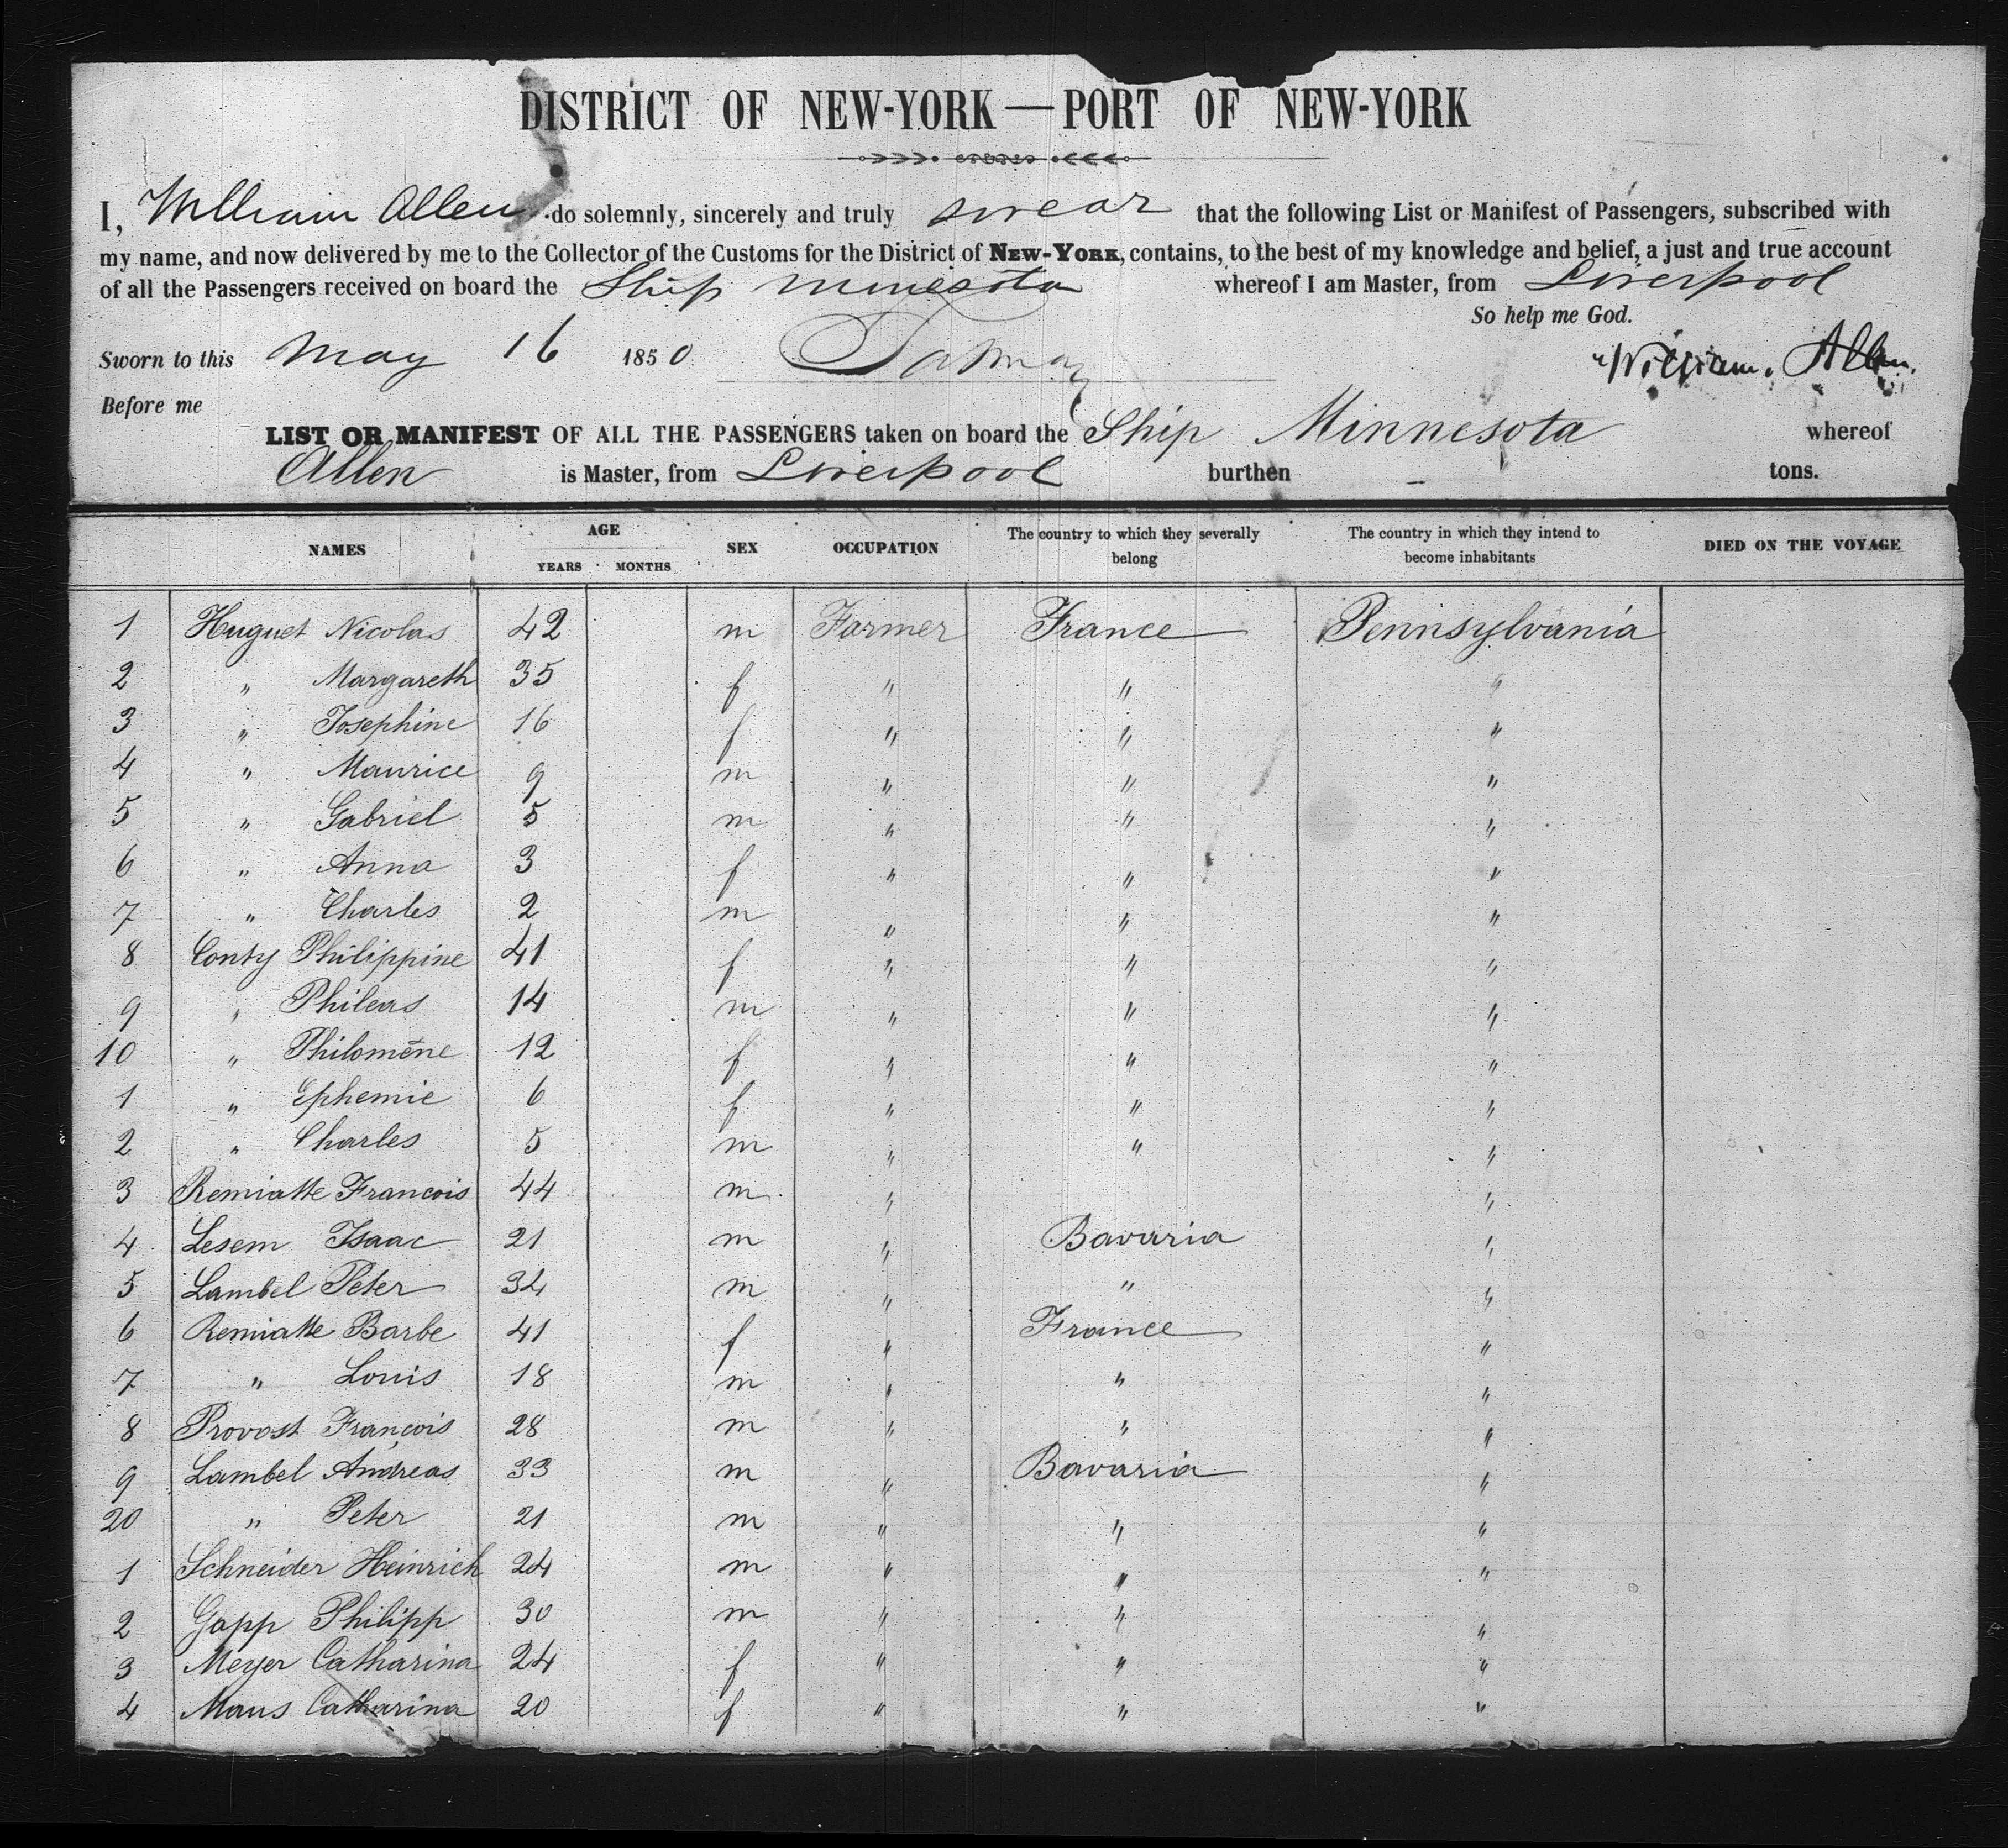 DISTRICT OF NEW-YORK — PORT OF NEW-YORK
I, William Allen do solemnly, sincerely and truly swear that the following List or Manifest of Passengers, subscribed with
my name, and now delivered by me to the Collector of the Customs for the District of NEW-YORK, contains, to the best of my knowledge and belief, a just and true account
of all the Passengers received on board the Ship Minesota whereof I am Master, from Liverpool
So help me God.
Sworn to this May 16 1850 William Allen.
Before me
LIST OR MANIFEST OF ALL THE PASSENGERS taken on board the Ship Minnesota whereof
Allen is Master, from Liverpool burthen - tons.
NAMES AGE YEARS MONTHS SEX OCCUPATION The country to which they severally belong The country in which they intend to become inhabitants DIED ON THE VOYAGE
1 Huguet Nicolas 42 m Farmer France Pennsylvania
2 " Margareth 35 f " " "
3 " Josephine 16 f " " "
4 " Maurice 9 m " " "
5 " Gabriel 5 m " " "
6 " Anna 3 f " " "
7 " Charles 2 m " " "
8 Conty Philippine 41 f " " "
9 " Phileas 14 m " " "
10 " Philomène 12 f " " "
1 " Ephemie 6 f " " "
2 " Charles 5 m " " "
3 Remiatte Francois 44 m " "
4 Lesem Isaac 21 m " Bavaria "
5 Lambel Peter 34 m " " "
6 Remiatte Barbe 41 f " France "
7 " Louis 18 m " " "
8 Provost François 28 m " " "
9 Lambel Andreas 33 m " Bavaria "
20 " Peter 21 m " " "
1 Schneider Heinrich 24 m " " "
2 Gapp Philipp 30 m " " "
3 Meyer Catharina 24 f " " "
4 Maus Catharina 20 f " " "